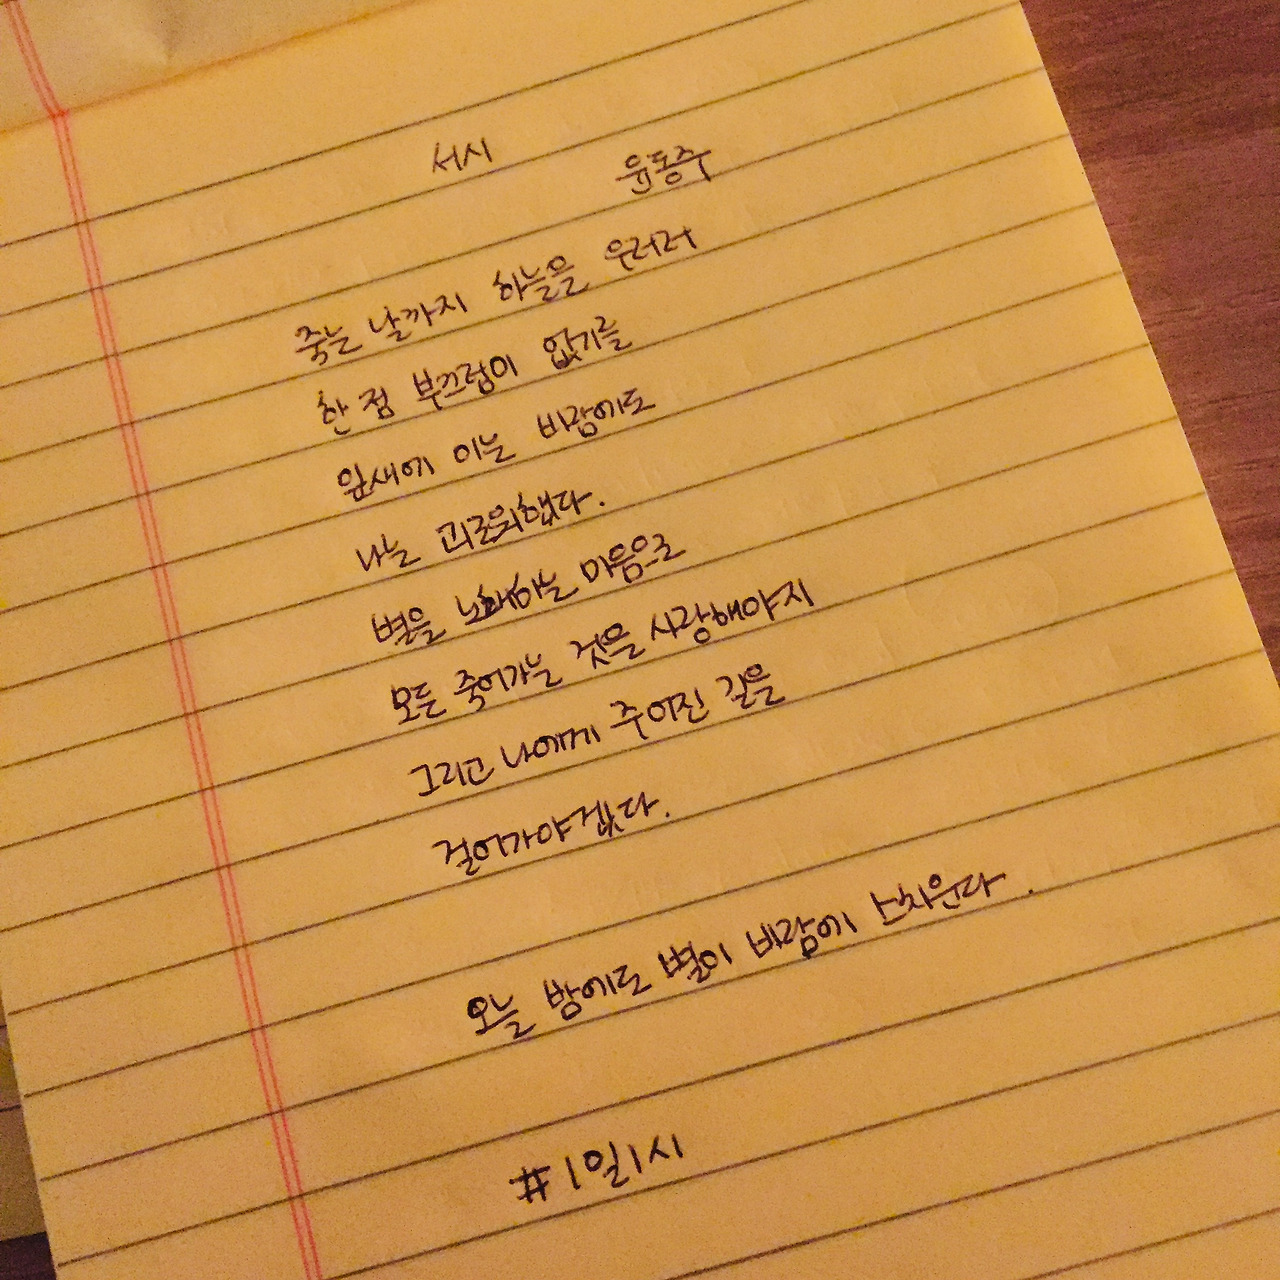 서시
윤동주
죽는 날까지 하늘을 우러러
한 점 부끄럼이 없기를
잎새에 이는 바람에도
나는 괴로워했다.
별을 노래하는 마음으로
모든 죽어가는 것을 사랑해야지
그리고 나에게 주어진 길을
걸어가야겠다.
오늘 밤에도 별이 바람에 스치운다.
#1일1시